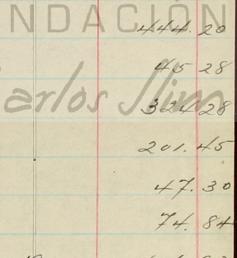 NDACIÓN
444.20
45 28
arlos Slim
324 28
201.45
47.30
74.84